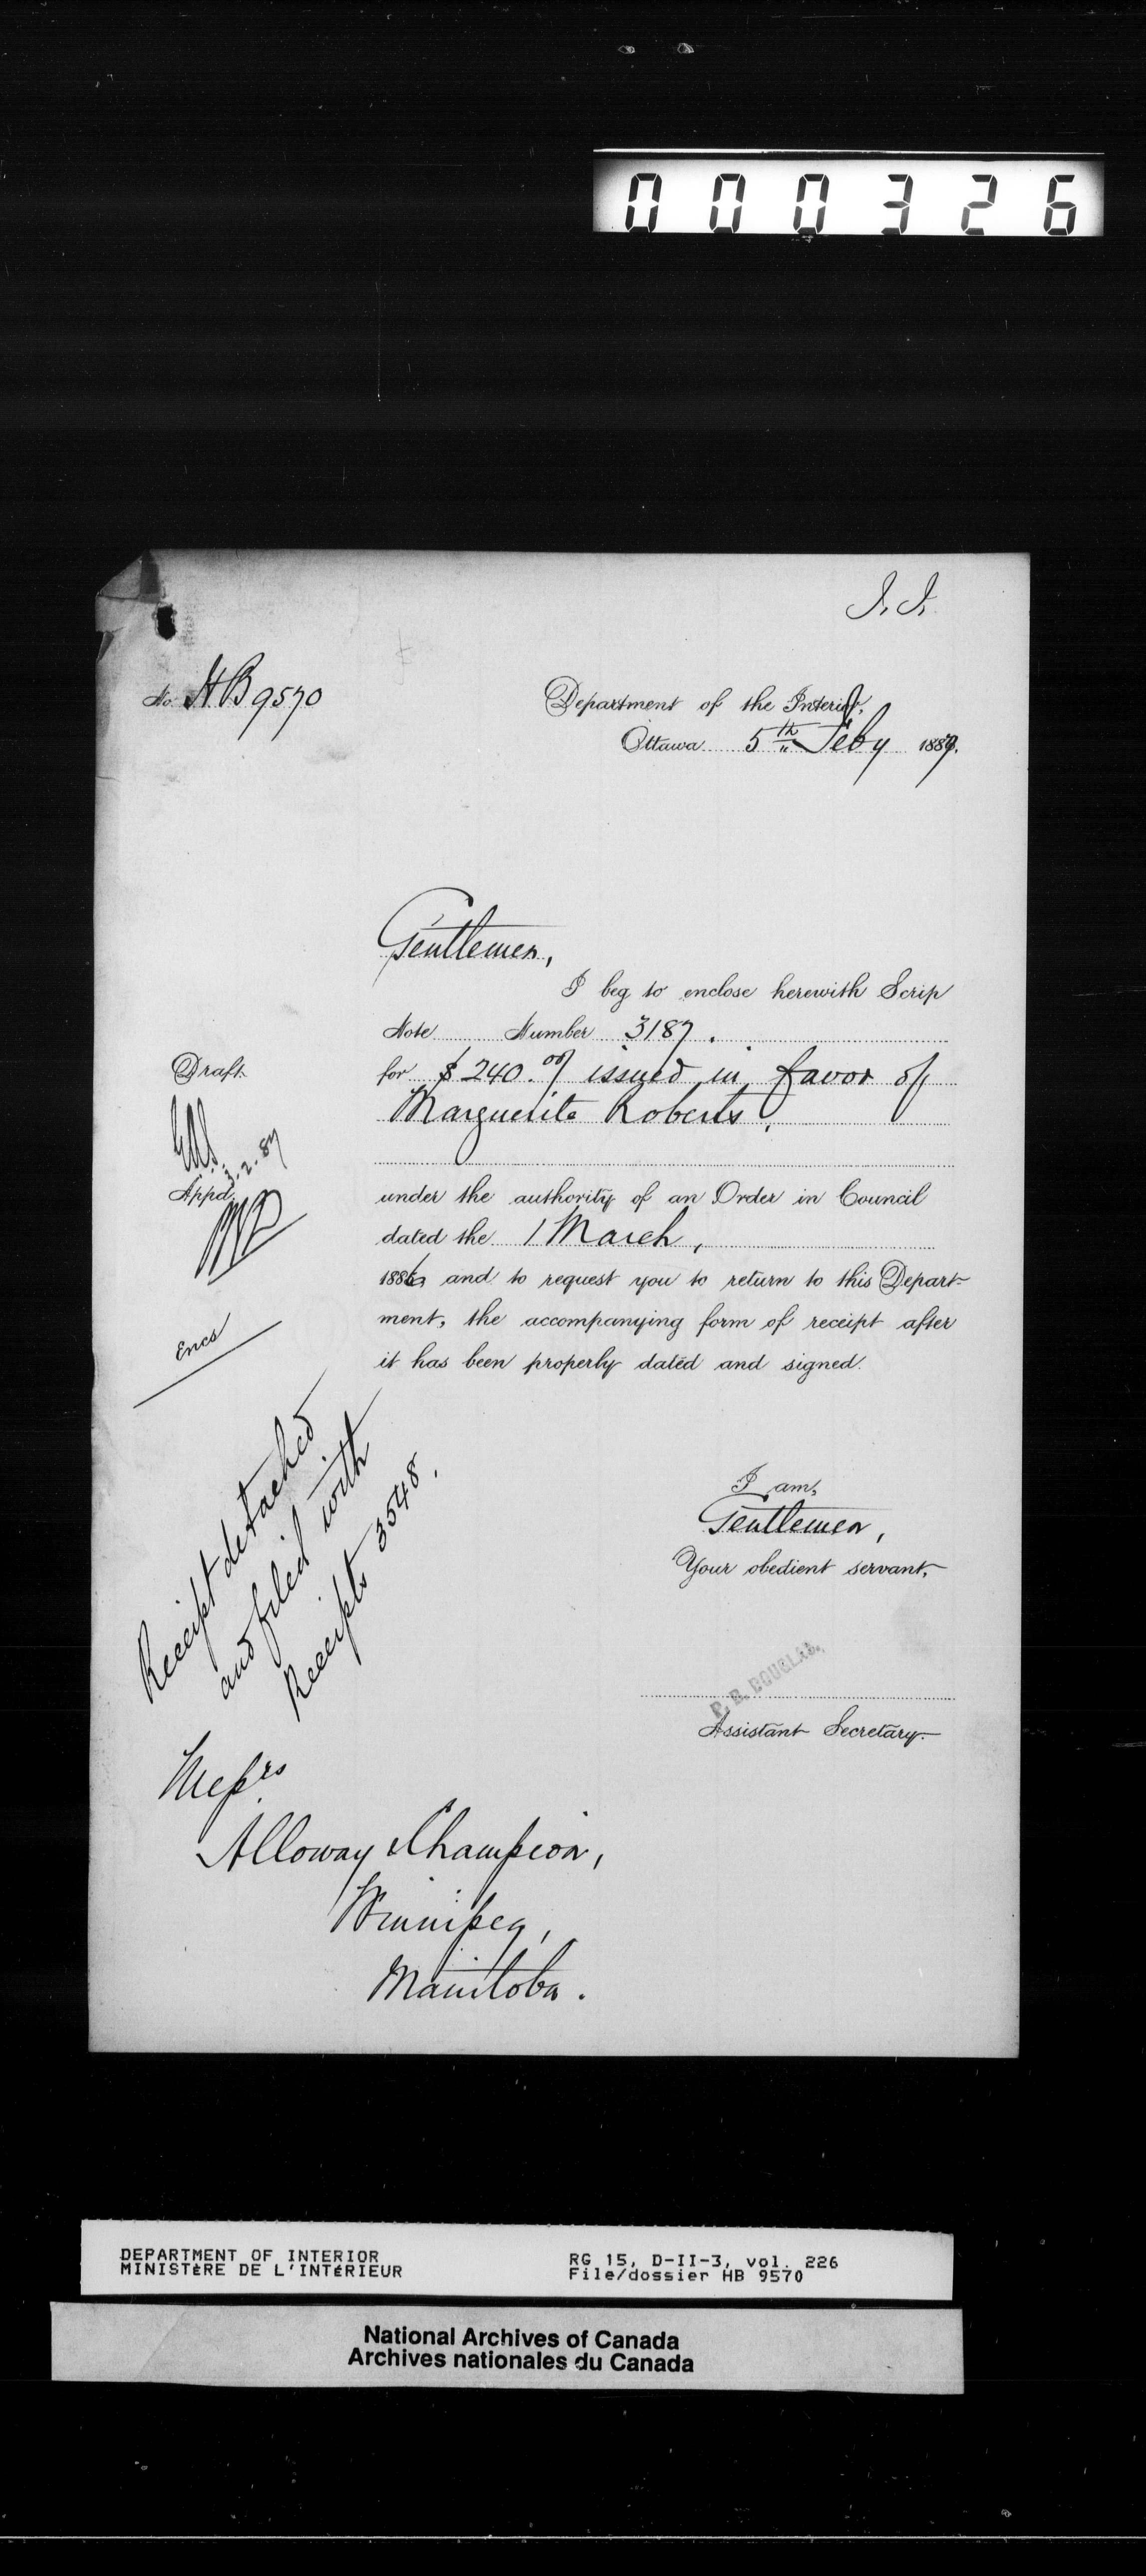 000326
J. J.
No. HB 9570
Department of the Interior,
Ottawa 5th Feby 1887.
Gentlemen,
I beg to enclose herewith Scrip
Note Number 3187.
for $240.00/ issued in favor of
Marguerite Roberts,
under the authority of an Order in Council
dated the 1 March,
1886, and to request you to return to this Depart-
ment, the accompanying form of receipt after
it has been properly dated and signed.
Draft
3.2.87
Appd.
Encs
Receipt detached
and filed with
Receipts 3548.
I am,
Gentlemen,
Your obedient servant,
P. B. DOUGLAS,
Assistant Secretary.
Messrs
Alloway & Champion,
Winnipeg,
Manitoba.
DEPARTMENT OF INTERIOR
MINISTÈRE DE L'INTÉRIEUR
RG 15, D-II-3, vol. 226
File/dossier HB 9570
National Archives of Canada
Archives nationales du Canada